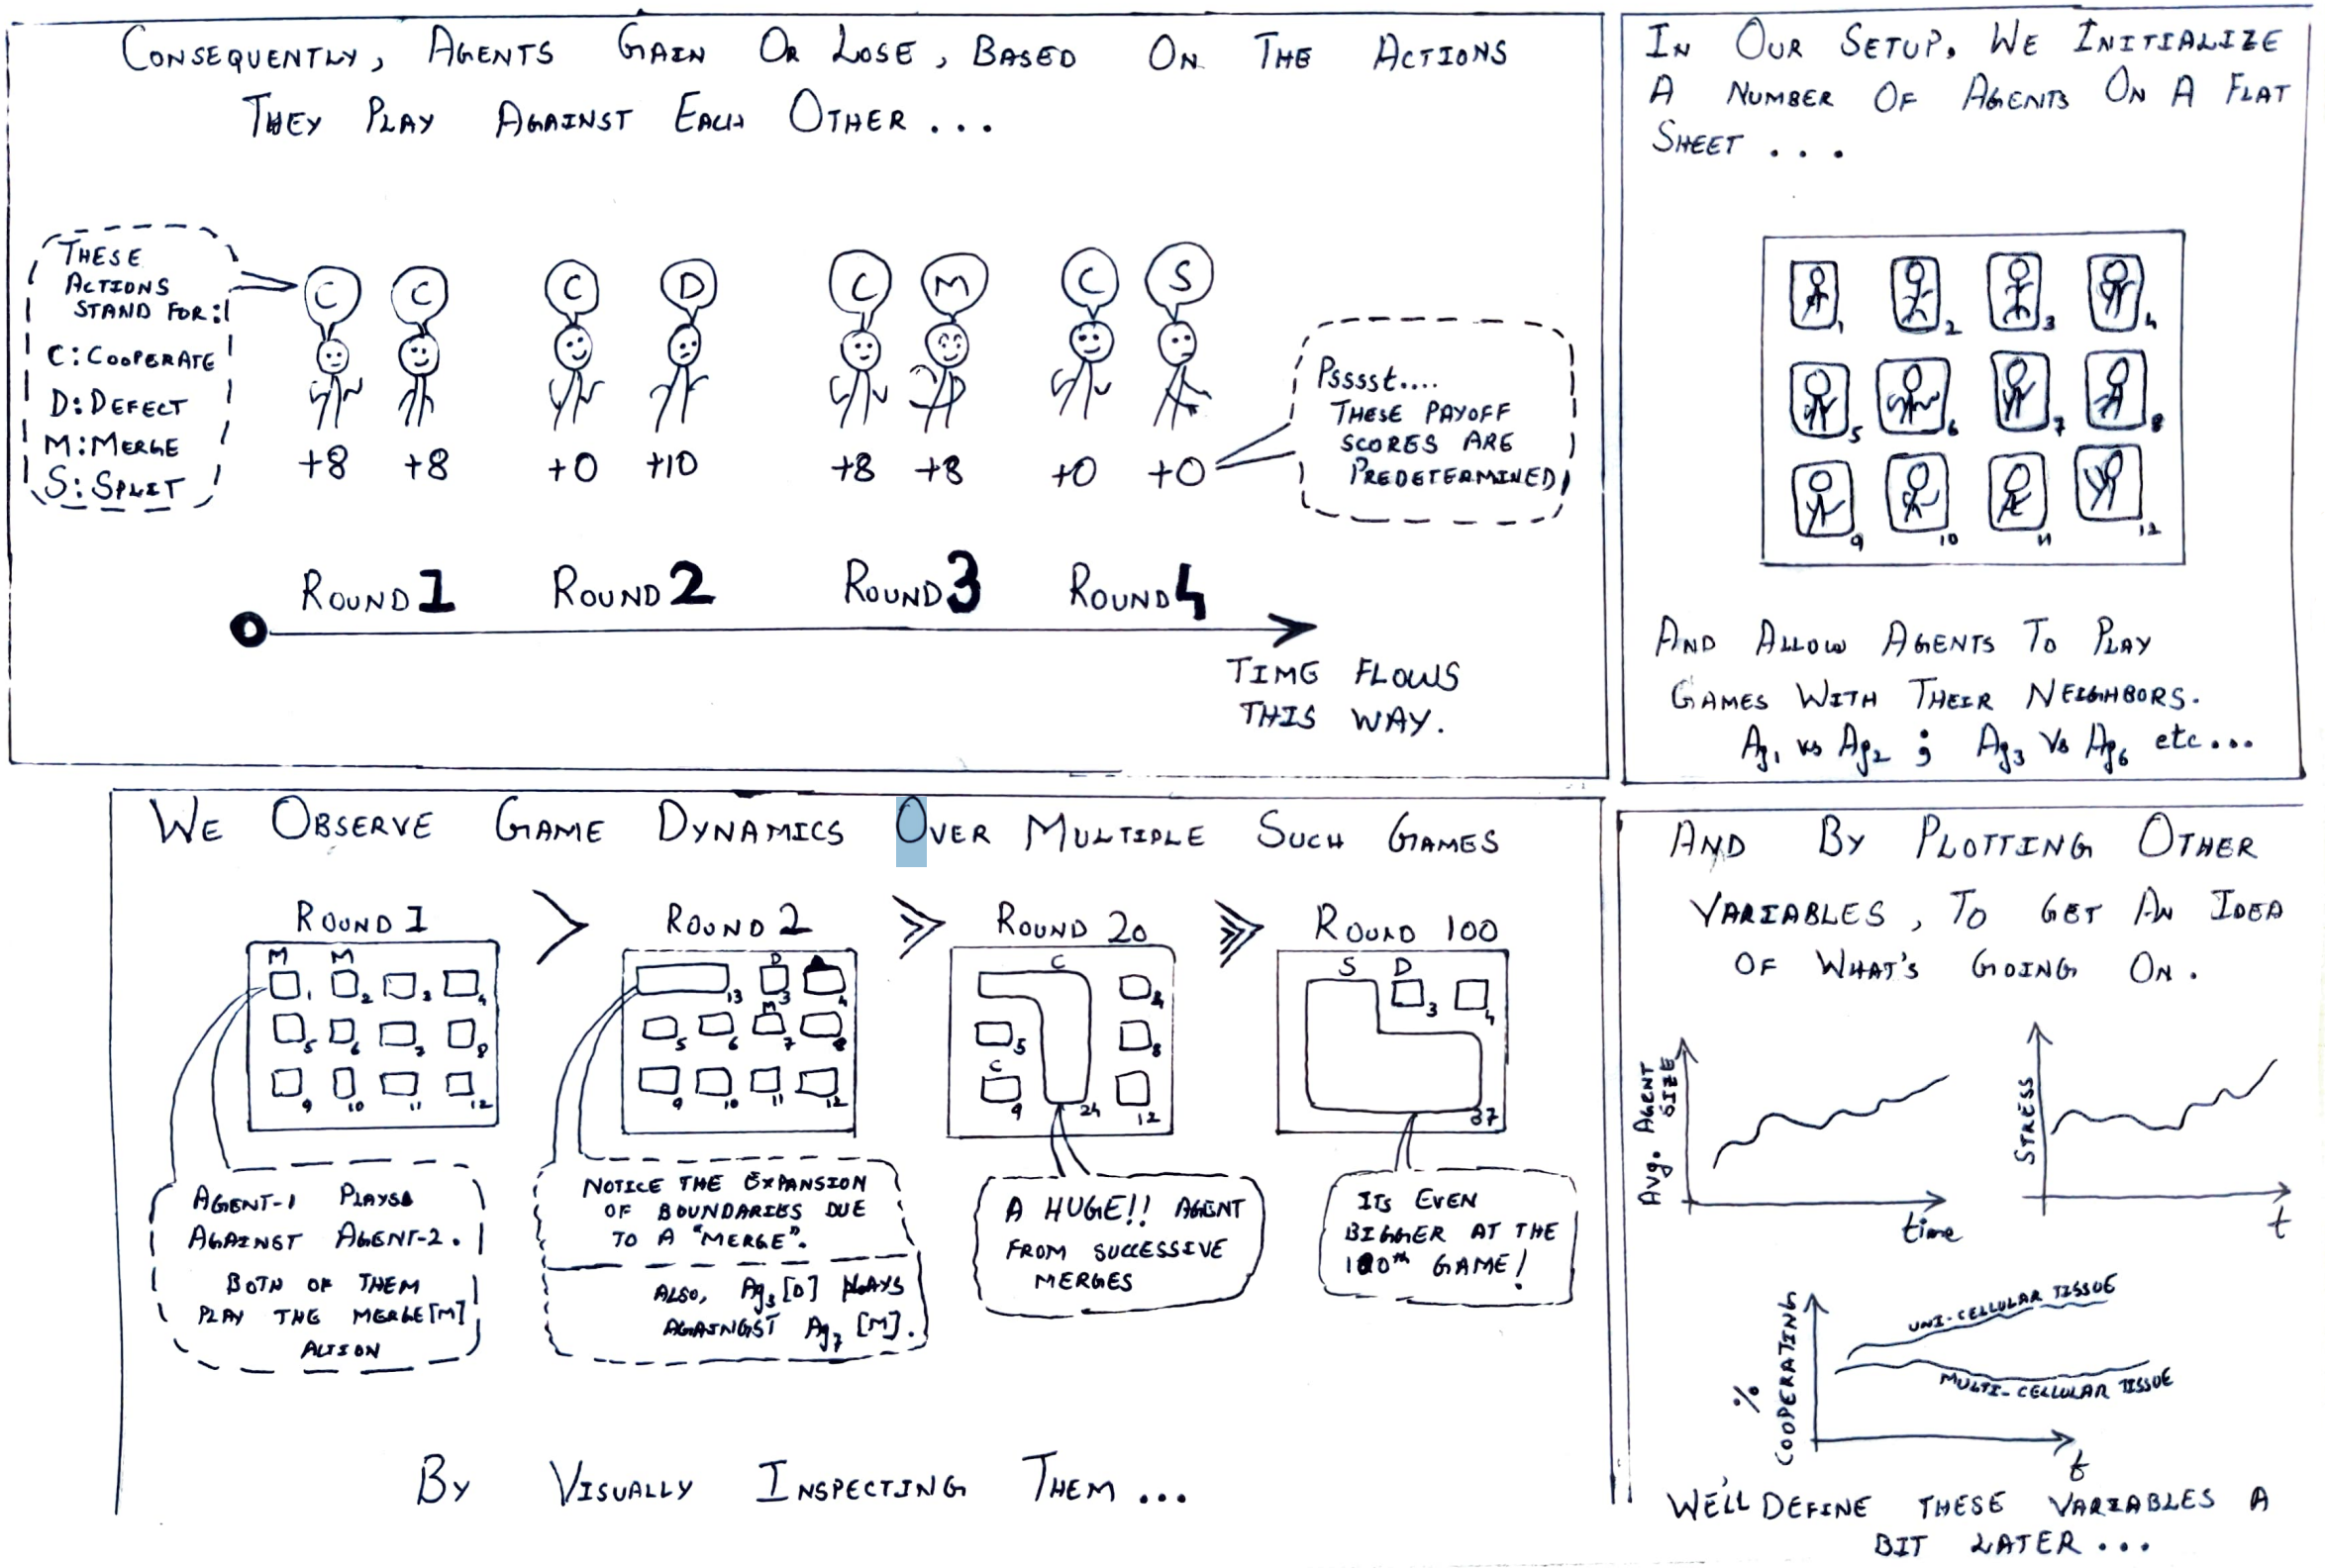 CONSEQUENTLY, AGENTS GAIN OR LOSE, BASED ON THE ACTIONS
THEY PLAY AGAINST EACH OTHER ...
THESE
ACTIONS
STAND FOR:
C: COOPERATE
D: DEFECT
M: MERGE
S: SPLIT
C C C D C M C S
+8 +8 +0 +10 +8 +8 +0 +0
Psssst....
THESE PAYOFF
SCORES ARE
PREDETERMINED
ROUND 1 ROUND 2 ROUND 3 ROUND 4
TIME FLOWS
THIS WAY.
IN OUR SETUP, WE INITIALIZE
A NUMBER OF AGENTS ON A FLAT
SHEET ...
1 2 3 4
5 6 7 8
9 10 11 12
AND ALLOW AGENTS TO PLAY
GAMES WITH THEIR NEIGHBORS.
Ag1 vs Ag2 ; Ag3 Vs Ag6 etc...
WE OBSERVE GAME DYNAMICS OVER MULTIPLE SUCH GAMES
ROUND 1 > ROUND 2 >> ROUND 20 >>> ROUND 100
M M
1 2 3 4
5 6 7 8
9 10 11 12
D
13 3 4
M
5 6 7 8
9 10 11 12
C
4
5 8
C
9 24 12
S D
3 4
37
AGENT-1 PLAYS
AGAINST AGENT-2.
BOTH OF THEM
PLAY THE MERGE[M]
ACTION
NOTICE THE EXPANSION
OF BOUNDARIES DUE
TO A "MERGE".
ALSO, Ag3 [D] PLAYS
AGAINGST Ag7 [M].
A HUGE!! AGENT
FROM SUCCESSIVE
MERGES
ITS EVEN
BIGGER AT THE
100th GAME!
BY VISUALLY INSPECTING THEM ...
AND BY PLOTTING OTHER
VARIABLES, TO GET AN IDEA
OF WHAT'S GOING ON.
Avg. AGENT
SIZE
time
STRESS
t
% COOPERATING
UNI-CELLULAR TISSUE
MULTI-CELLULAR TISSUE
t
WE'LL DEFINE THESE VARIABLES A
BIT LATER ...